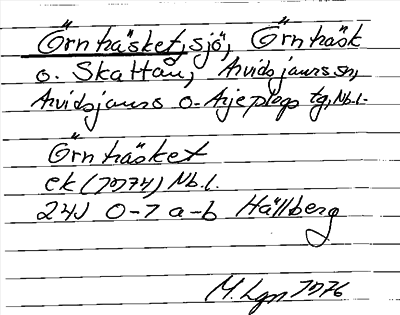 Örnträsket, sjö, Örnträsk
o. Skattau, Arvidsjaurs sn,
Arvidsjaurs o. Arjeplogs tg, Nb.l.
Örnträsket
ek (1974) Nb.l.
24J 0-7 a-b Hällberg
M. Lgn 1976